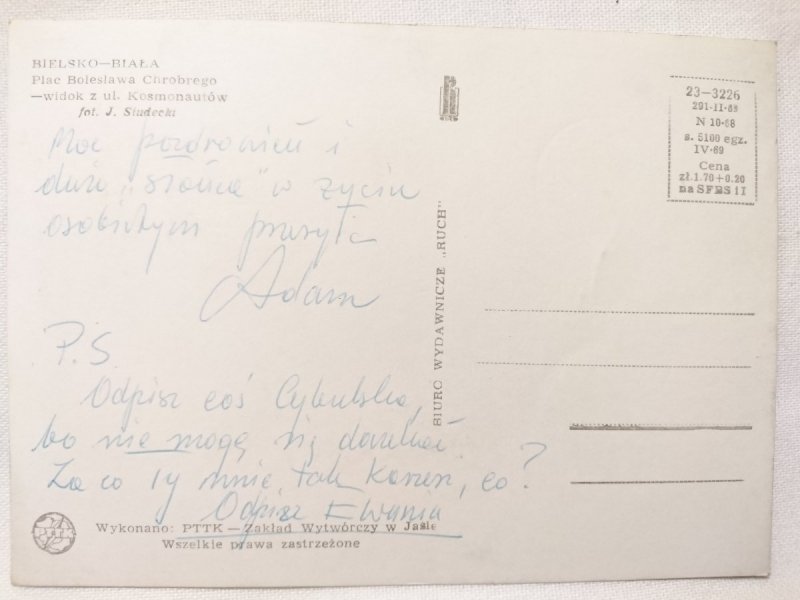 BIELSKO—BIAŁA
Plac Bolesława Chrobrego
—widok z ul. Kosmonautów
fot. J. Siudecki
Moc pozdrowień i
dużo „słońca" w życiu
osobistym przesyła
Adam
P.S.
Odpisz coś Cybulska,
bo nie mogę się doczekać
Za co Ty mnie tak karzesz, co?
Odpisz Ewunia
Wykonano: PTTK — Zakład Wytwórczy w Jaśle
Wszelkie prawa zastrzeżone
BIURO WYDAWNICZE „RUCH"
23—3226
291-II-68
N 10-68
s. 5100 egz.
IV-69
Cena
zł.1.70+0.20
na SFBS i I